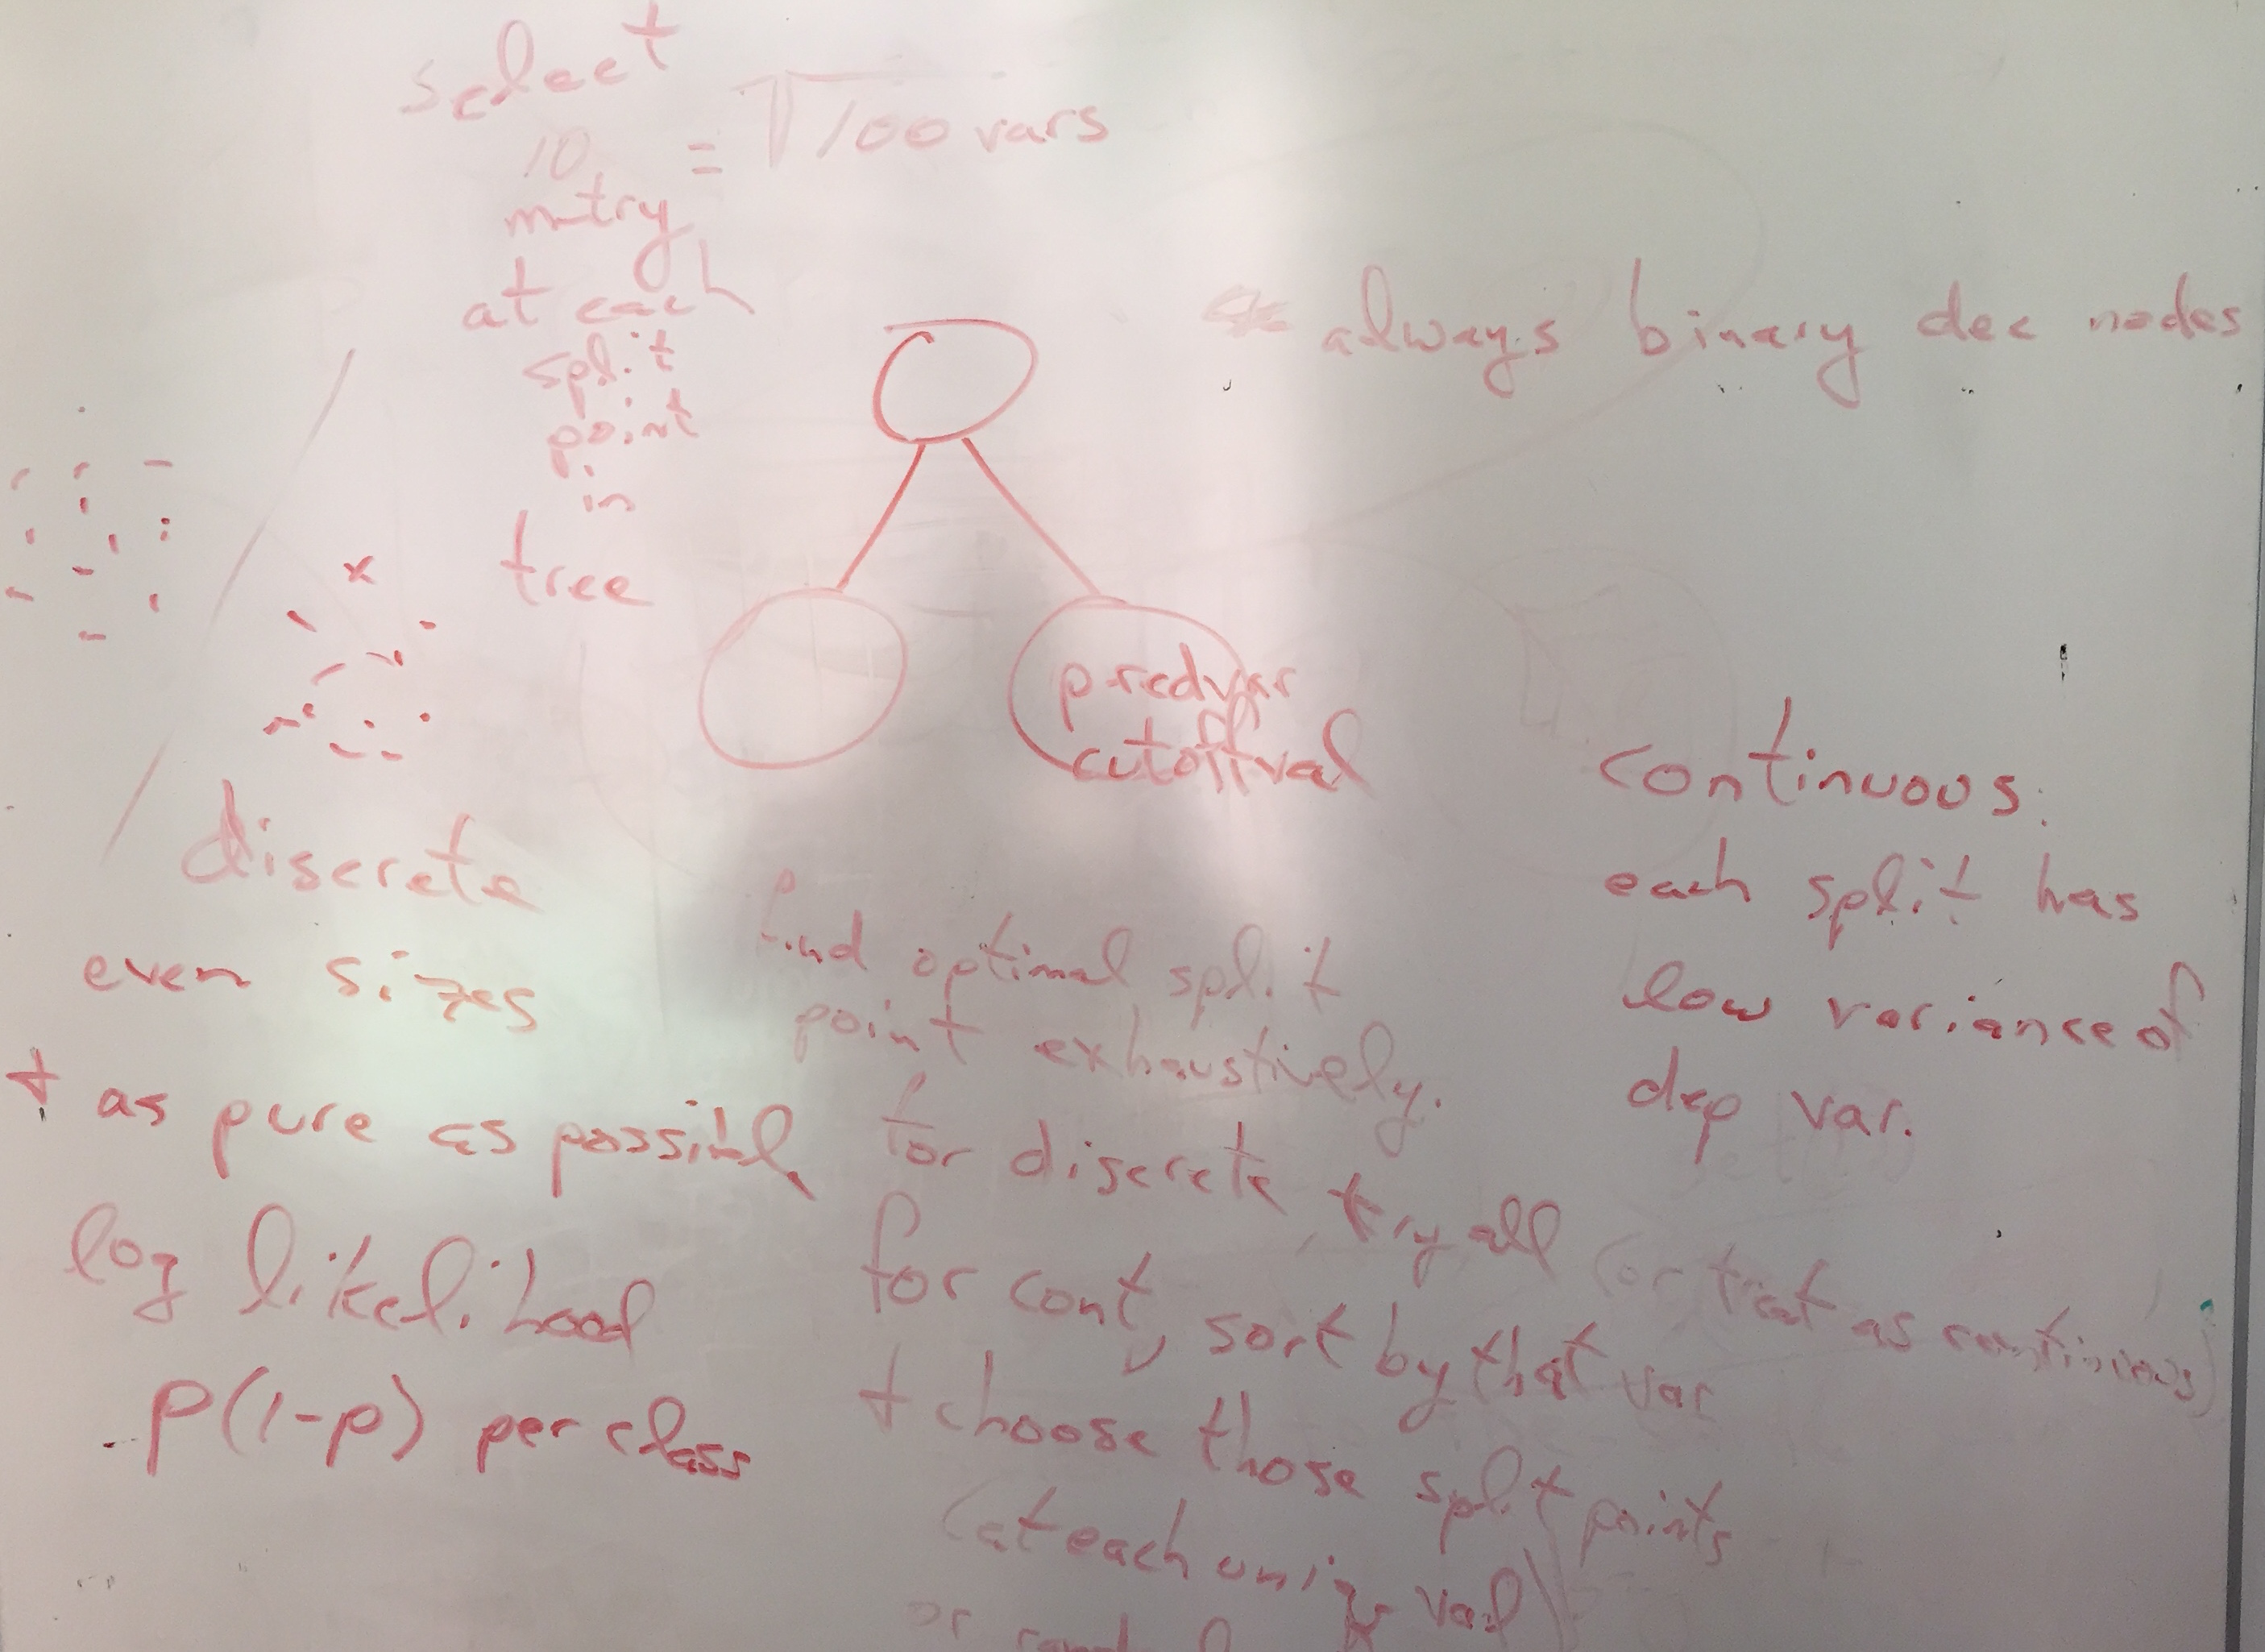 select
10 = √100 vars
mtry
at each
split
point
in
tree
always binary dec nodes
predvar
cutoffval
discrete
even sizes
+ as pure as possible
log likelihood
p(1-p) per class
find optimal split
point exhaustively.
for discrete, try all (or treat as continuous)
for cont, sort by that var
+ choose those split points
(at each uniq val)
or
continuous:
each split has
low variance of
dep var.